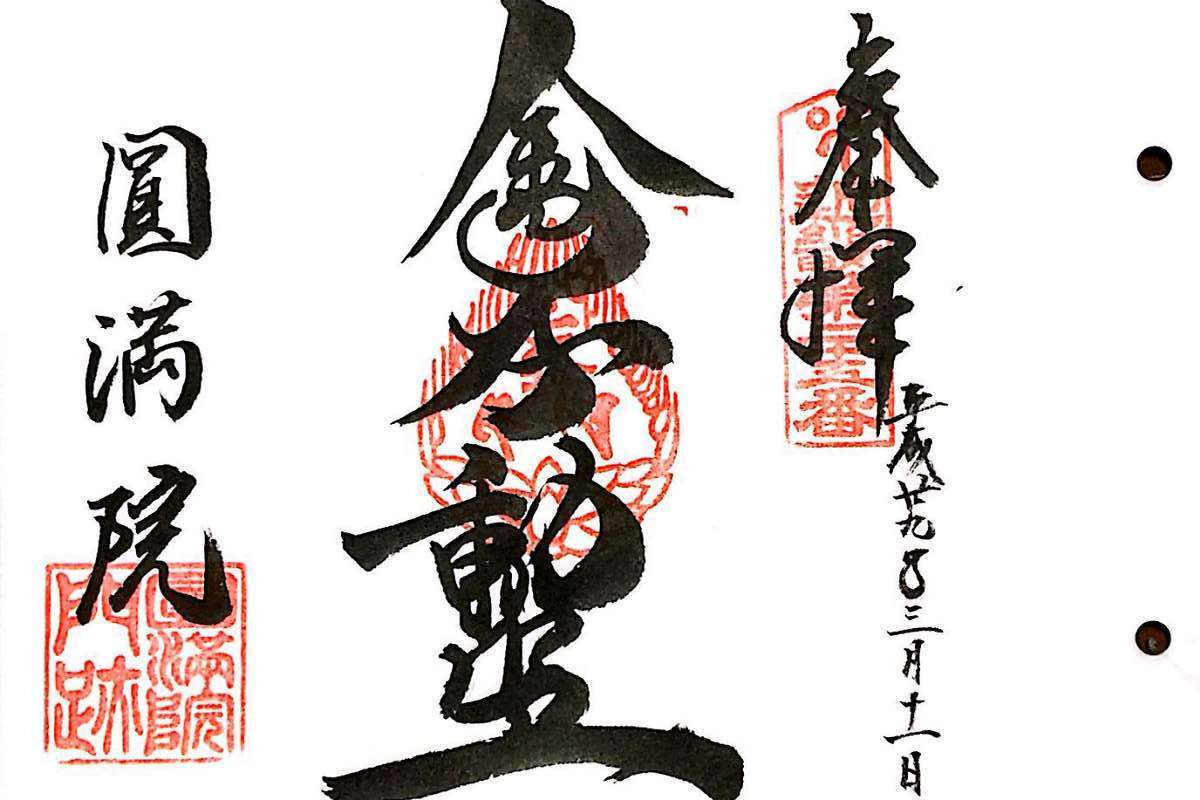 奉拝
平成廿九年三月十一日
金不動
圓満院
五番
圓満院
門跡